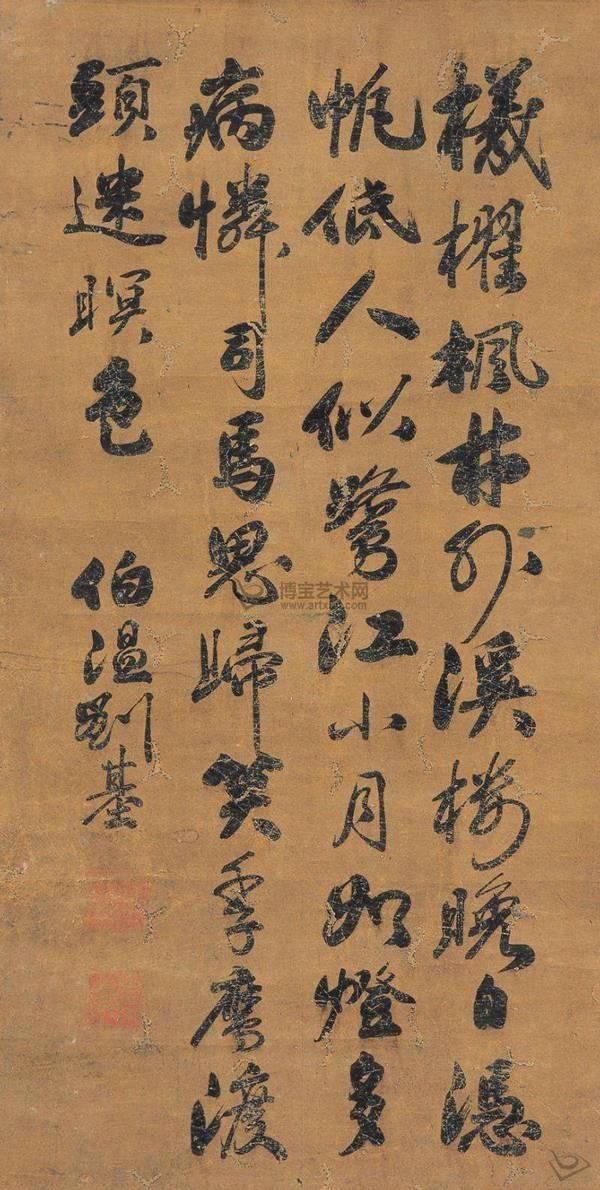 檥櫂楓林外溪橋晚自憑
帆低人似鷺江小月如燈多
病憐司馬思歸笑季鷹渡
頭迷暝色
伯溫劉基
博宝艺术网